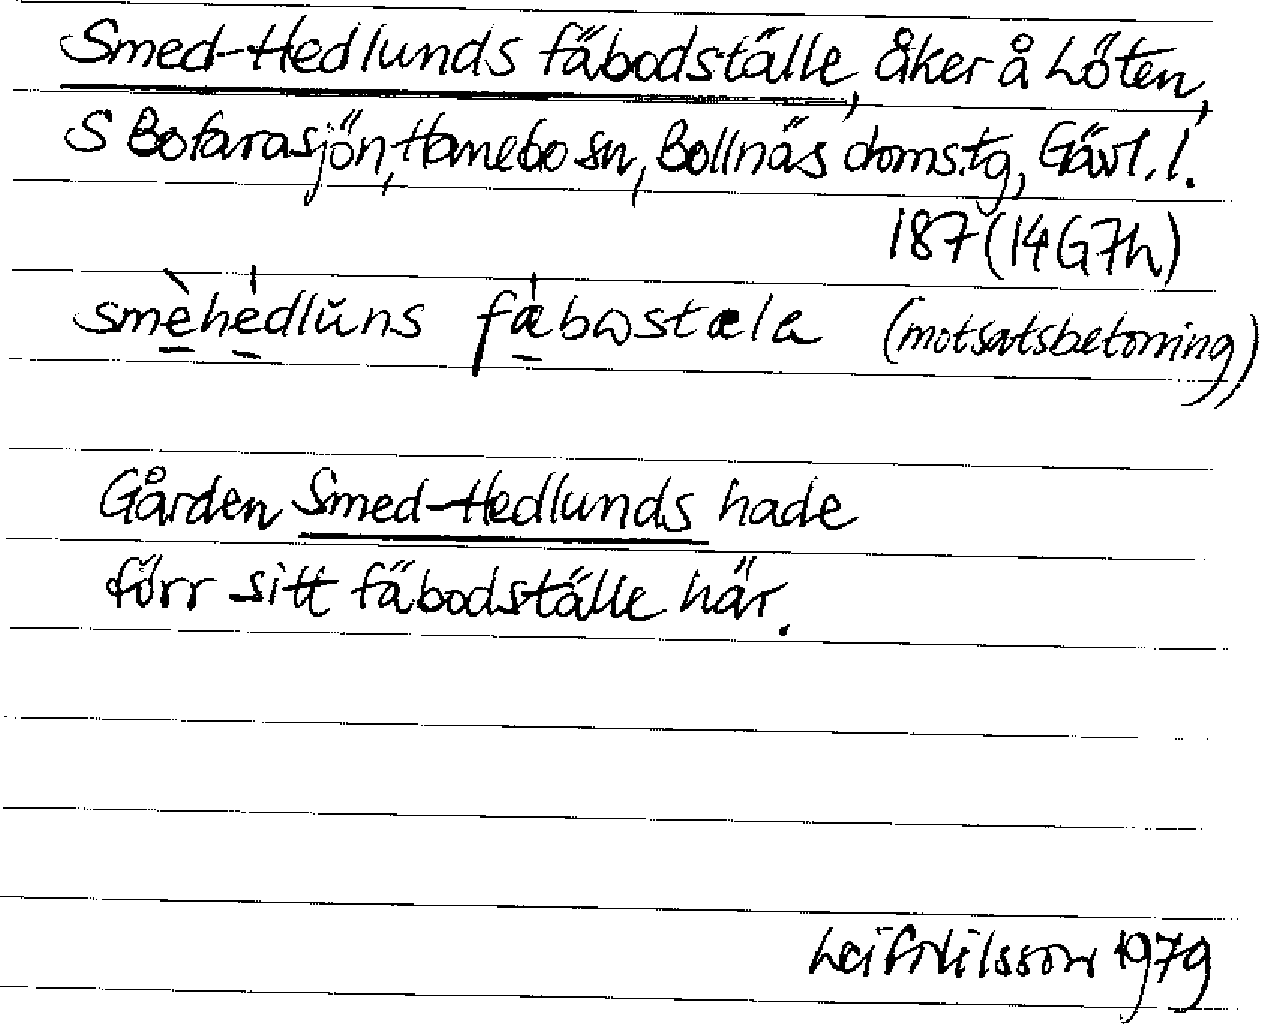 Smed-Hedlunds fäbodställe, åker å Löten,
S Bofarasjön, Hanebo sn, Bollnäs domstg, Gävl. l.
187 (14G7h)
smèhédlŭns fǽbωstæla (motsatsbetoning)
Gården Smed-Hedlunds hade
förr sitt fäbodställe här.
Leif Nilsson 1979